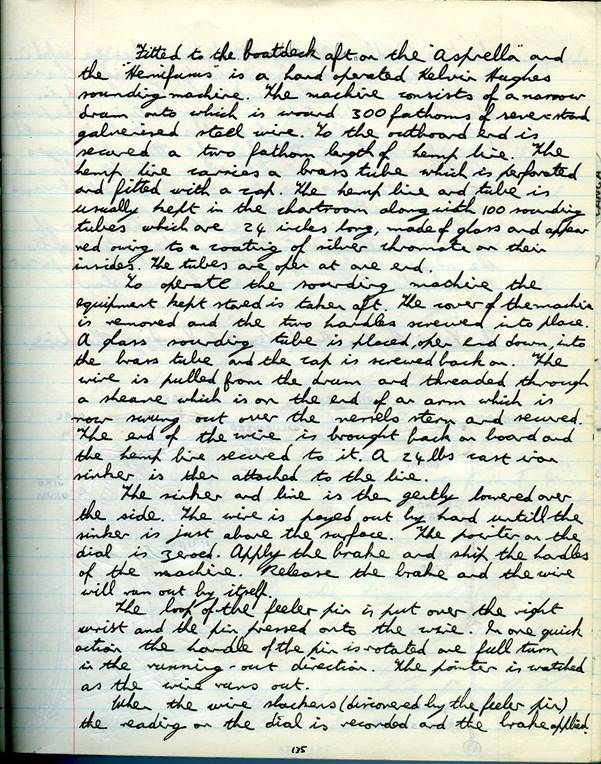 Fitted to the boatdeck aft on the "Asprella" and
the "Hemifusus" is a hand operated Kelvin Hughes
sounding machine. The machine consists of a narrow
drum onto which is wound 300 fathoms of seven strand
galvenised steel wire. To the outboard end is
secured a two fathom length of hemp line. The
hemp line carries a brass tube which is perforated
and fitted with a cap. The hemp line and tube is
usually kept in the chartroom along with 100 sounding
tubes which are 24 inches long, made of glass and appear
red owing to a coating of silver chromate on their
insides. The tubes are open at one end.
To operate the sounding machine the
equipment kept stored is taken aft. The cover of the machine
is removed and the two handles screwed into place.
A glass sounding tube is placed, open end down, into
the brass tube and the cap is screwed back on. The
wire is pulled from the drum and threaded through
a sheave which is on the end of an arm which is
now swung out over the vessels stern and secured.
The end of the wire is brought back on board and
the hemp line secured to it. A 24 lbs cast iron
sinker is then attached to the line.
The sinker and line is then gently lowered over
the side. The wire is payed out by hand untill the
sinker is just above the surface. The pointer on the
dial is zeroed. Apply the brake and ship the handles
of the machine. Release the brake and the wire
will run out by itself.
The loop of the feeler pin is put over the right
wrist and the pin pressed onto the wire. In one quick
action the handle of the pin is rotated one full turn
in the running-out direction. The pointer is watched
as the wire runs out.
When the wire slackens (discovered by the feeler pin)
the reading on the dial is recorded and the brake applied.
135